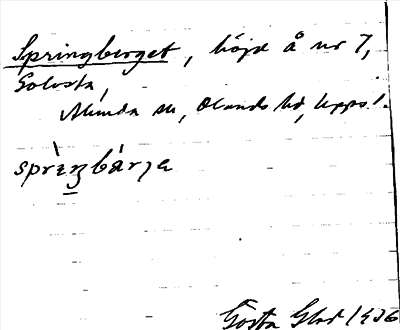 Springberget, höjd å nr 7,
Golvsta,
Almunda sn, Olands hd, Upps. l.
sprìŋbárjə
Gösta Glad 1936